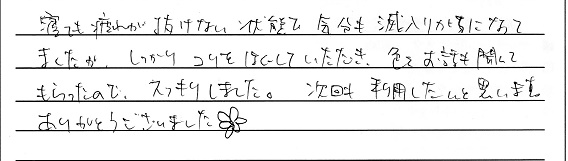 寝ても疲れが抜けない状態で気分も滅入りがちになって
ましたが、しっかりコリをほぐしていただき、色々お話も聞いて
もらったので、スッキリしました。 次回も利用したいと思います。
ありがとうございました